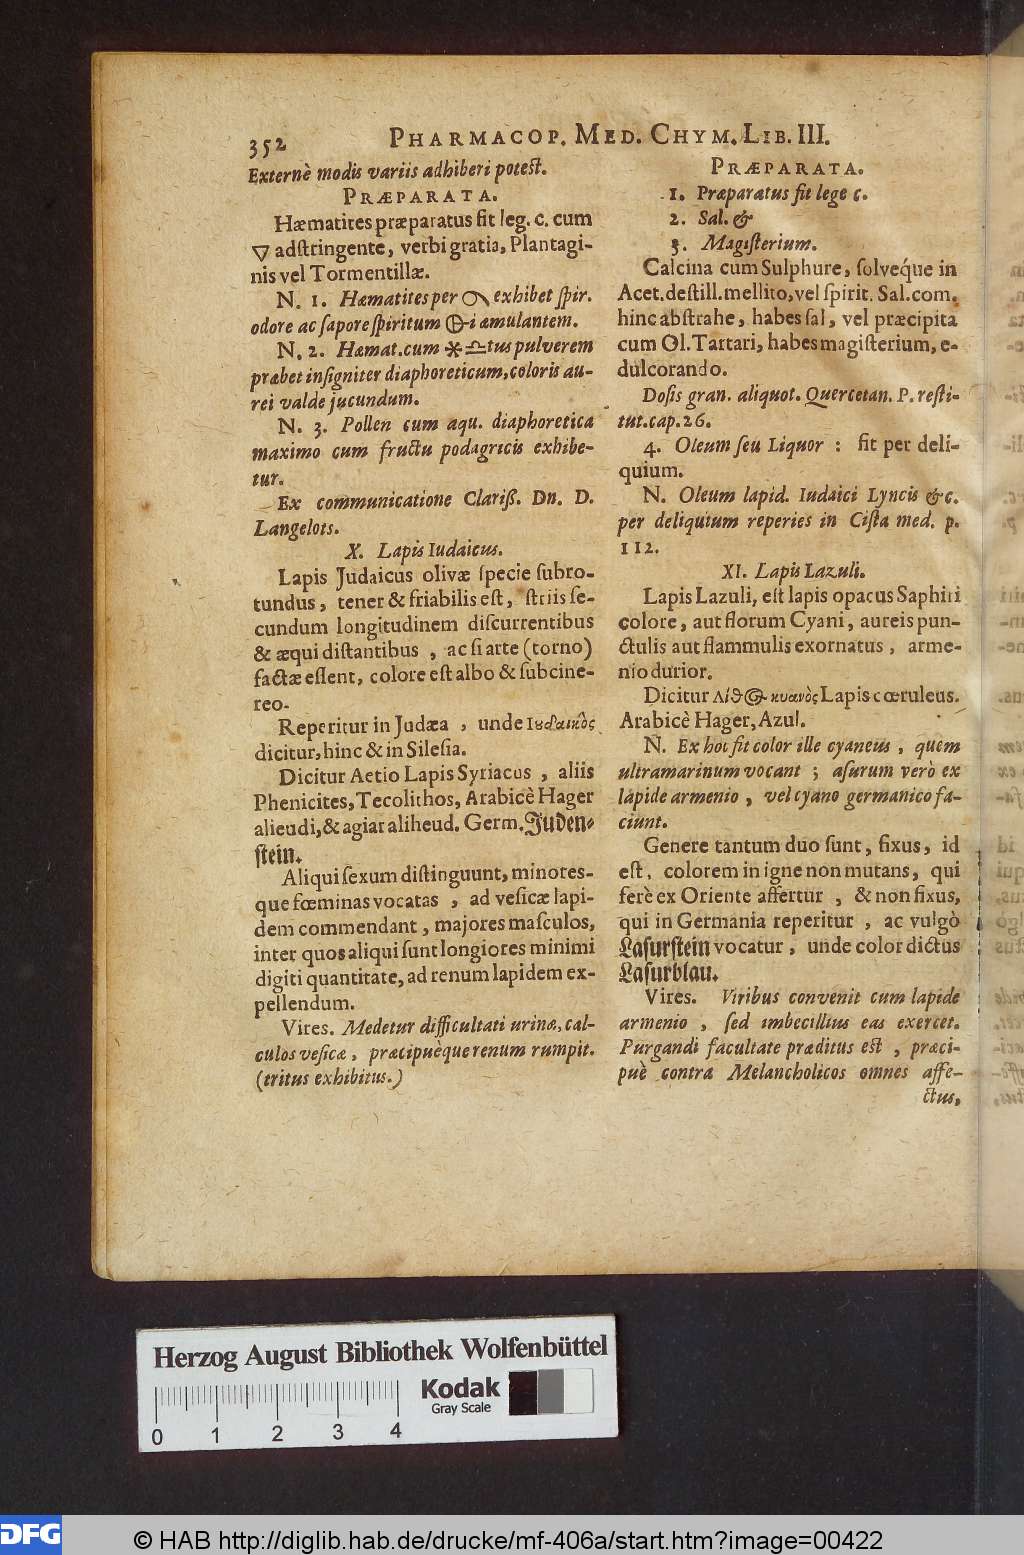 352 PHARMACOP. MED. CHYM. LIB. III.
Externè modis variis adhiberi potest.
PRÆPARATA.
Hæmatites præparatus fit leg. c. cum
🜄 adstringente, verbi gratia, Plantagi-
nis vel Tormentillæ.
N. 1. Hæmatites per exhibet ſpir.
odore ac ſapore ſpiritum 🜖i æmulantem.
N. 2. Hæmat. cum ✳ ♎tus pulverem
præbet inſigniter diaphoreticum, coloris au-
rei valde jucundum.
N. 3. Pollen cum aqu. diaphoretica
maximo cum fructu podagricis exhibe-
tur.
Ex communicatione Clariß. Dn. D.
Langelots.
X. Lapis Iudaicus.
Lapis Judaicus olivæ ſpecie ſubro-
tundus, tener & friabilis eſt, ſtriis ſe-
cundum longitudinem diſcurrentibus
& æqui diſtantibus, ac ſi arte (torno)
factæ eſſent, colore eſt albo & ſubcine-
reo.
Reperitur in Judæa, unde Ιουδαικὸς
dicitur, hinc & in Sileſia.
Dicitur Aetio Lapis Syriacus, aliis
Phenicites, Tecolithos, Arabicè Hager
alieudi, & agiar aliheud. Germ. Juden-
ſtein.
Aliqui ſexum diſtinguunt, minores-
que fœminas vocatas, ad veſicæ lapi-
dem commendant, majores maſculos,
inter quos aliqui ſunt longiores minimi
digiti quantitate, ad renum lapidem ex-
pellendum.
Vires. Medetur difficultati urinæ, cal-
culos veſicæ, præcipuèque renum rumpit.
(tritus exhibitus.)
PRÆPARATA.
1. Præparatus fit lege c.
2. Sal. &
3. Magiſterium.
Calcina cum Sulphure, ſolvequé in
Acet. deſtill. mellito, vel ſpirit. Sal. com.
hinc abſtrahe, habes ſal, vel præcipita
cum Ol. Tartari, habes magiſterium, e-
dulcorando.
Doſis gran. aliquot. Quercetan. P. reſti-
tut. cap. 26.
4. Oleum ſeu Liquor: fit per deli-
quium.
N. Oleum lapid. Iudaici Lyncis &c.
per deliquium reperies in Ciſta med. p.
112.
XI. Lapis Lazuli.
Lapis Lazuli, eſt lapis opacus Saphiri
colore, aut florum Cyani, aureis pun-
ctulis aut flammulis exornatus, arme-
nio durior.
Dicitur Λίθος κυανὸς Lapis cœruleus.
Arabicè Hager, Azul.
N. Ex hoc fit color ille cyaneus, quem
ultramarinum vocant; aſurum verò ex
lapide armenio, vel cyano germanico fa-
ciunt.
Genere tantum duo ſunt, fixus, id
eſt, colorem in igne non mutans, qui
ferè ex Oriente affertur, & non fixus,
qui in Germania reperitur, ac vulgò
Laſurſtein vocatur, unde color dictus
Laſurblau.
Vires. Viribus convenit cum lapide
armenio, ſed imbecillius eas exercet.
Purgandi facultate præditus eſt, præci-
puè contra Melancholicos omnes affe-
ctus,
Herzog August Bibliothek Wolfenbüttel
Kodak
Gray Scale
0 1 2 3 4
DFG © HAB http://diglib.hab.de/drucke/mf-406a/start.htm?image=00422